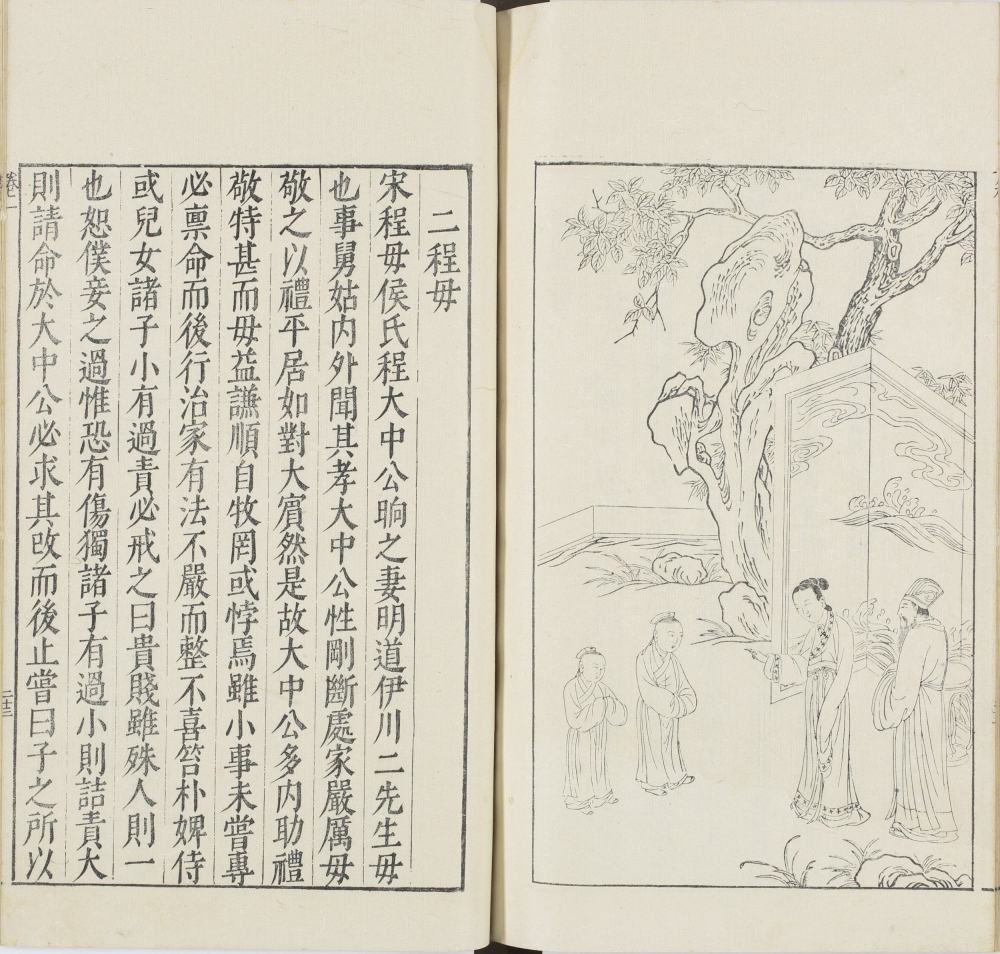 二程母
宋程母侯氏程大中公晌之妻明道伊川二先生母
也事舅姑内外聞其孝大中公性剛斷處家嚴厲母
敬之以禮平居如對大賓然是故大中公多内助禮
敬特甚而母益謙順自牧罔或悖焉雖小事未嘗專
必禀命而後行治家有法不嚴而整不喜笞朴婢侍
或兒女諸子小有過責必戒之曰貴賤雖殊人則一
也恕僕妾之過惟恐有傷獨諸子有過小則詰責大
則請命於大中公必求其改而後止嘗曰子之所以
卷二
二十三